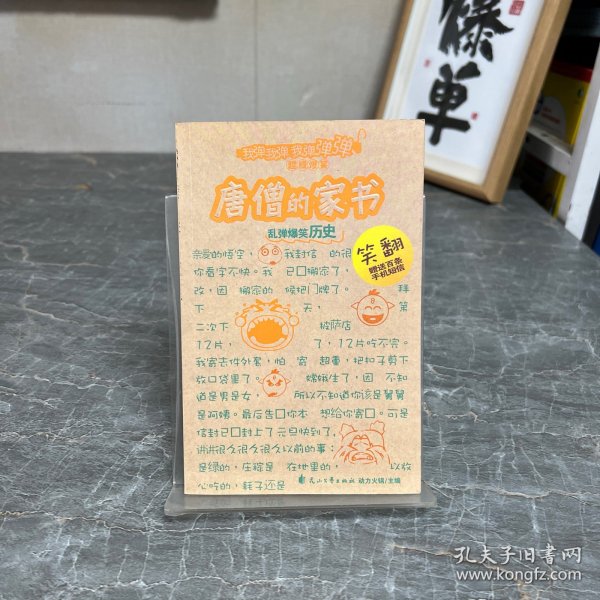 爆单
我弹我弹我弹弹弹
唐僧的家书
乱弹爆笑历史
笑翻
赠送百条
手机短信
亲爱的悟空， 我封信 的很
你看字不快。我 已 搬家了，
改，因 搬家的 候把门牌了。 拜
下 天， 第
二次下 披萨店
12片， 了，12片吃不完。
我寄去件外套，怕 寄 超重，把扣子剪下
放口袋里了。 嫦娥生了，因 不知
道是男是女， 所以不知道你该是舅舅
是阿姨。最后告 你本 想给你寄 。可是
信封已 封上了元旦快到了，
讲讲很久很久很久以前的事：
是绿的，庄稼是 在地里的， 以收
心吃的，耗子还是
动力火锅/主编
孔夫子旧书网
www.kongfz.com